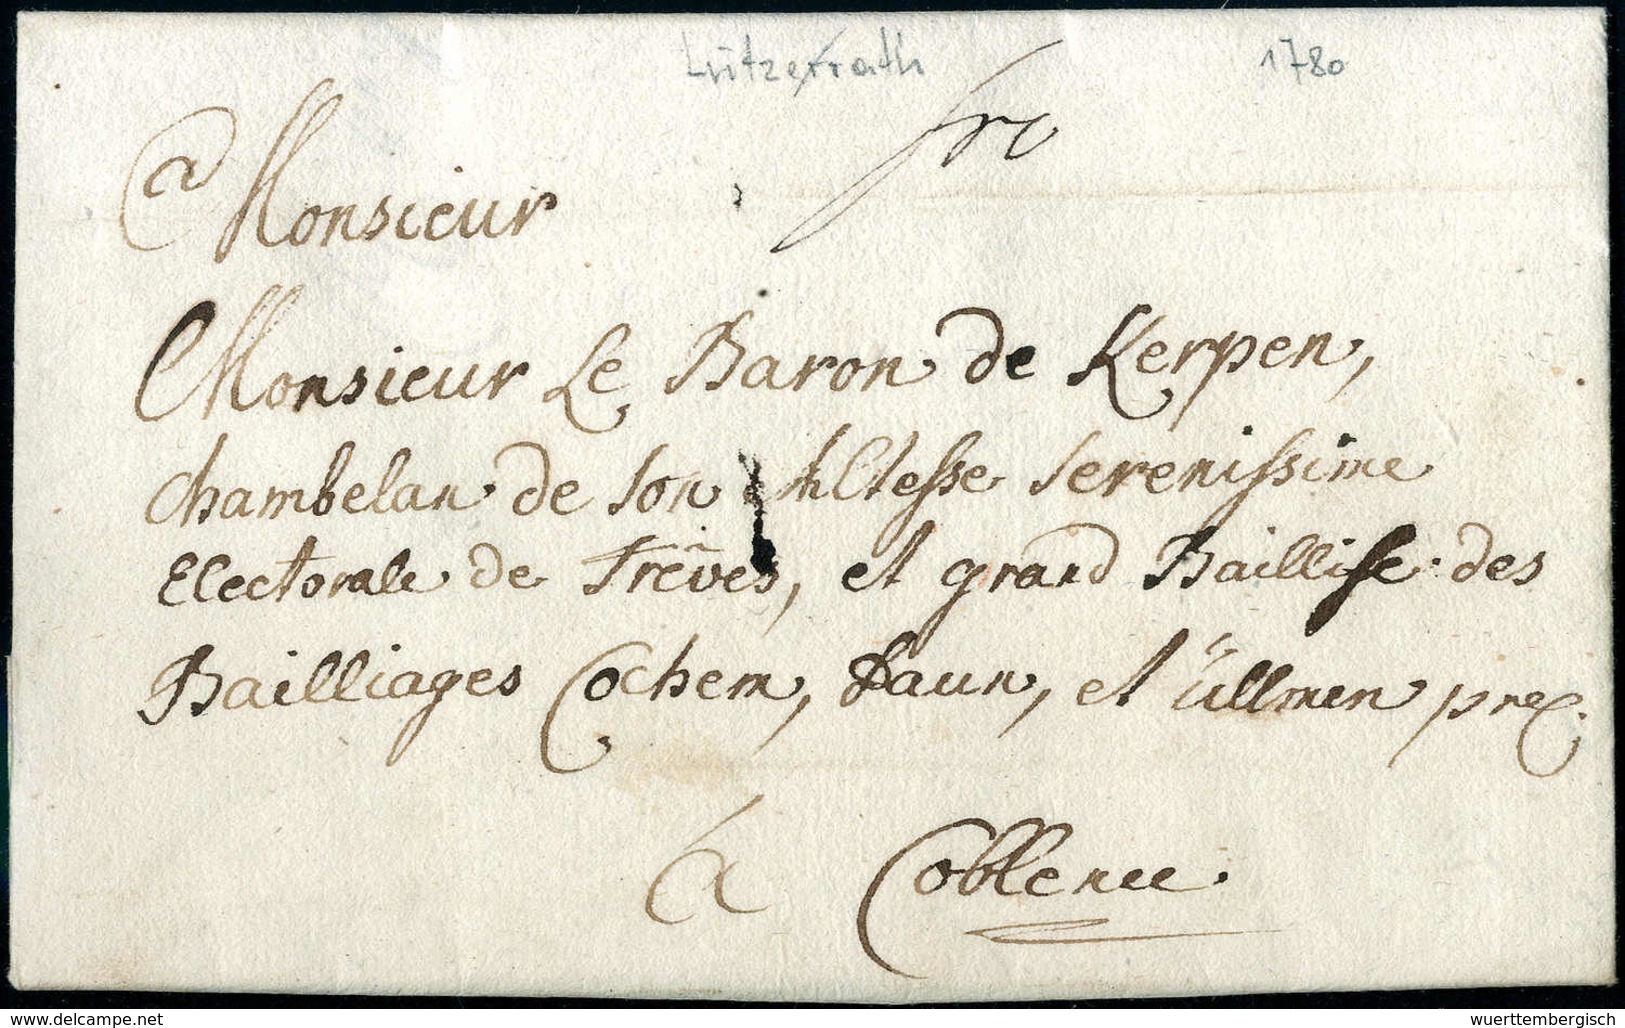 Lützerath 1780
fro
a Monsieur
Monsieur Le Baron de Kerpen,
chambelan de son Altesse serenissime
Electorale de Trêves, et grand Baillife des
Bailliages Cochem, Daun, et Üllmen prec:
a Coblence.
delcampe.net
wuerttembergisch